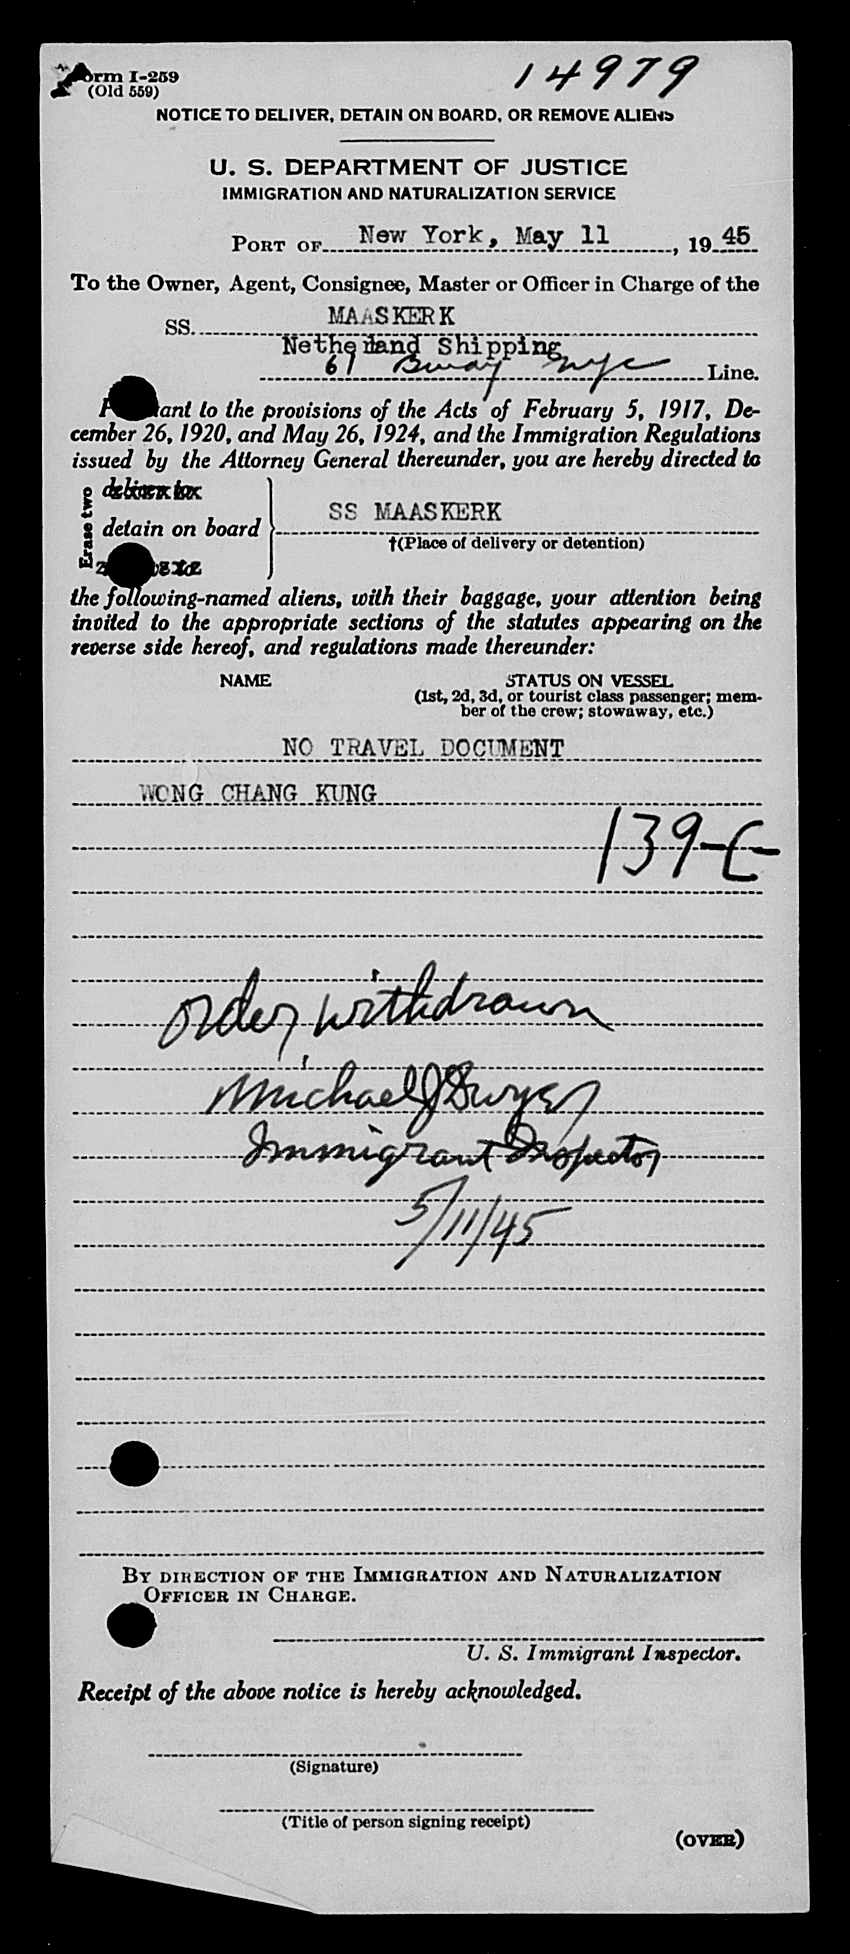 Form I-259
(Old 559)
14979
NOTICE TO DELIVER, DETAIN ON BOARD, OR REMOVE ALIENS
U. S. DEPARTMENT OF JUSTICE
IMMIGRATION AND NATURALIZATION SERVICE
PORT OF New York, May 11, 1945
To the Owner, Agent, Consignee, Master or Officer in Charge of the
SS. MAASKERK
Netherland Shipping
61 Bway NYC Line.
Pursuant to the provisions of the Acts of February 5, 1917, De-
cember 26, 1920, and May 26, 1924, and the Immigration Regulations
issued by the Attorney General thereunder, you are hereby directed to
Erase two
deliver to
detain on board
SS MAASKERK
†(Place of delivery or detention)
the following-named aliens, with their baggage, your attention being
invited to the appropriate sections of the statutes appearing on the
reverse side hereof, and regulations made thereunder:
NAME
STATUS ON VESSEL
(1st, 2d, 3d, or tourist class passenger; mem-
ber of the crew; stowaway, etc.)
NO TRAVEL DOCUMENT
WONG CHANG KUNG
139-C-
Order withdrawn
Michael J Dwyer
Immigrant Inspector
5/11/45
BY DIRECTION OF THE IMMIGRATION AND NATURALIZATION
OFFICER IN CHARGE.
U. S. Immigrant Inspector.
Receipt of the above notice is hereby acknowledged.
(Signature)
(Title of person signing receipt)
(OVER)